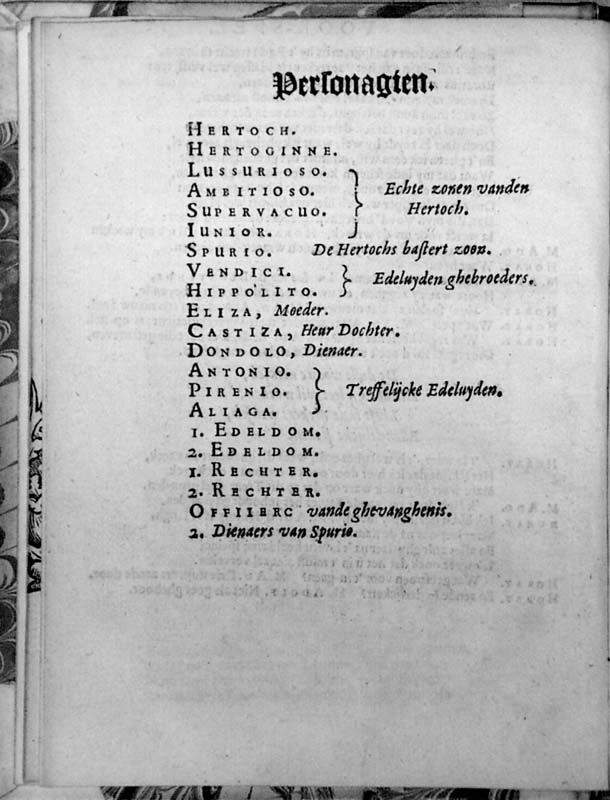 Personagien.
HERTOCH.
HERTOGINNE.
LUSSURIOSO.
AMBITIOSO. Echte zonen vanden
SUPERVACUO. Hertoch.
IUNIOR.
SPURIO. De Hertochs bastert zoon.
VENDICI.
HIPPOLITO. Edeluyden ghebroeders.
ELIZA, Moeder.
CASTIZA, Heur Dochter.
DONDOLO, Dienaer.
ANTONIO.
PIRENIO. Treffelijcke Edeluyden.
ALIAGA.
1. EDELDOM.
2. EDELDOM.
1. RECHTER.
2. RECHTER.
OFFIIERC vande ghevanghenis.
2. Dienaers van Spurio.